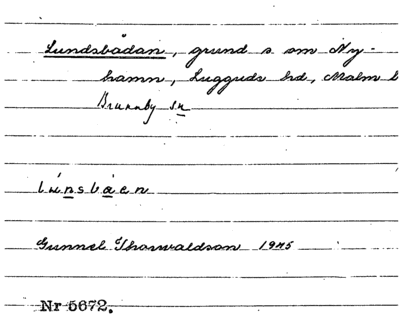 Lundsbådan, grund s om Ny-
hamn, Luggude hd, Malm l
Brunnby sn
lu̇nslȧen
Gunnel Thorwaldson 1945
Nr 5672.